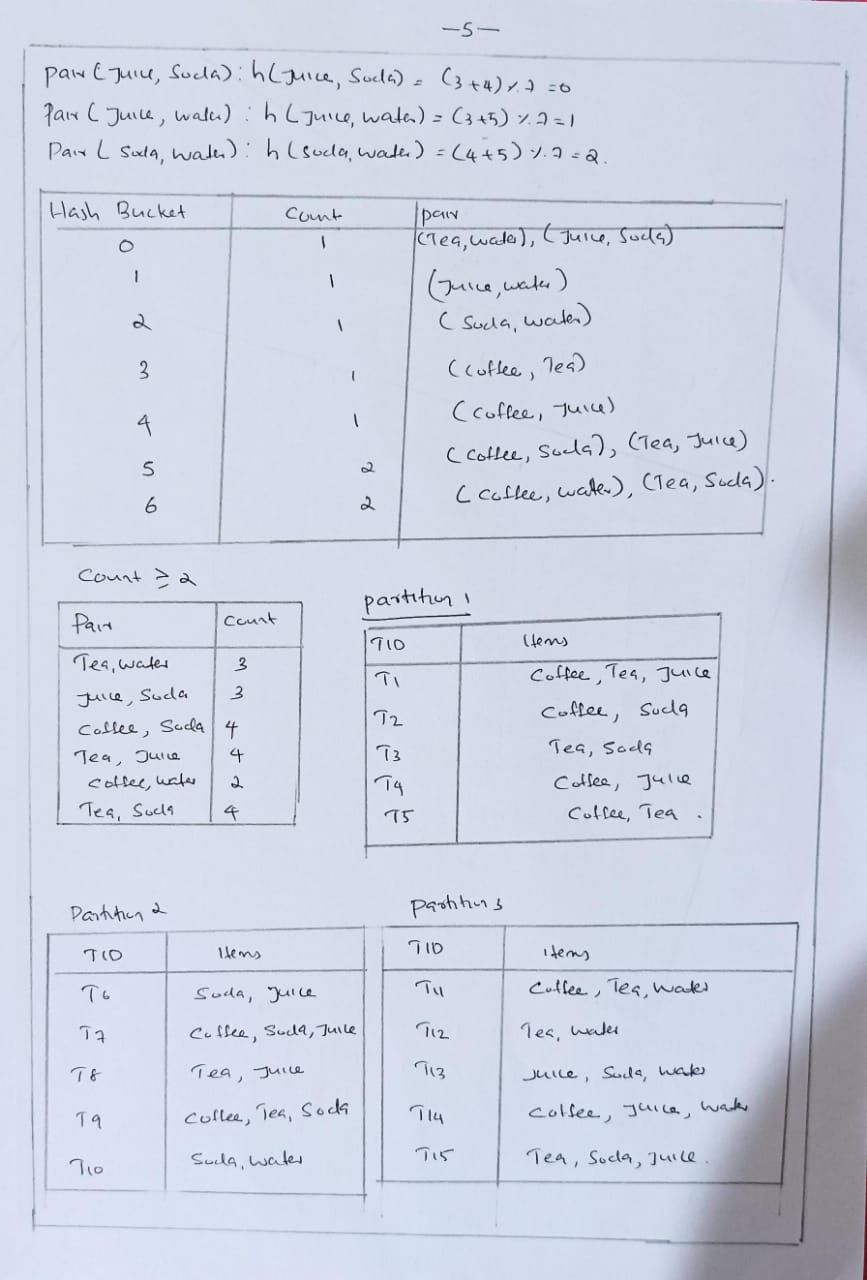 —5—
Pair (Juice, Soda) : h(Juice, Soda) = (3+4) % 7 = 0
Pair (Juice, water) : h (Juice, water) = (3+5) % 7 = 1
Pair (Soda, water) : h (Soda, water) = (4+5) % 7 = 2.
Hash Bucket Count pair
0 1 (Tea, water), (Juice, Soda)
1 1 (Juice, water)
2 1 (Soda, water)
3 1 (Coffee, Tea)
4 1 (Coffee, Juice)
5 2 (Coffee, Soda), (Tea, Juice)
6 2 (Coffee, water), (Tea, Soda).
Count ≥ 2
Pair Count
Tea, water 3
Juice, Soda 3
Coffee, Soda 4
Tea, Juice 4
Coffee, water 2
Tea, Soda 4
partition 1
TID Items
T1 Coffee, Tea, Juice
T2 Coffee, Soda
T3 Tea, Soda
T4 Coffee, Juice
T5 Coffee, Tea .
Partition 2
TID Items
T6 Soda, Juice
T7 Coffee, Soda, Juice
T8 Tea, Juice
T9 Coffee, Tea, Soda
T10 Soda, water
partition 3
TID Items
T11 Coffee, Tea, water
T12 Tea, water
T13 Juice, Soda, water
T14 Coffee, Juice, water
T15 Tea, Soda, Juice.